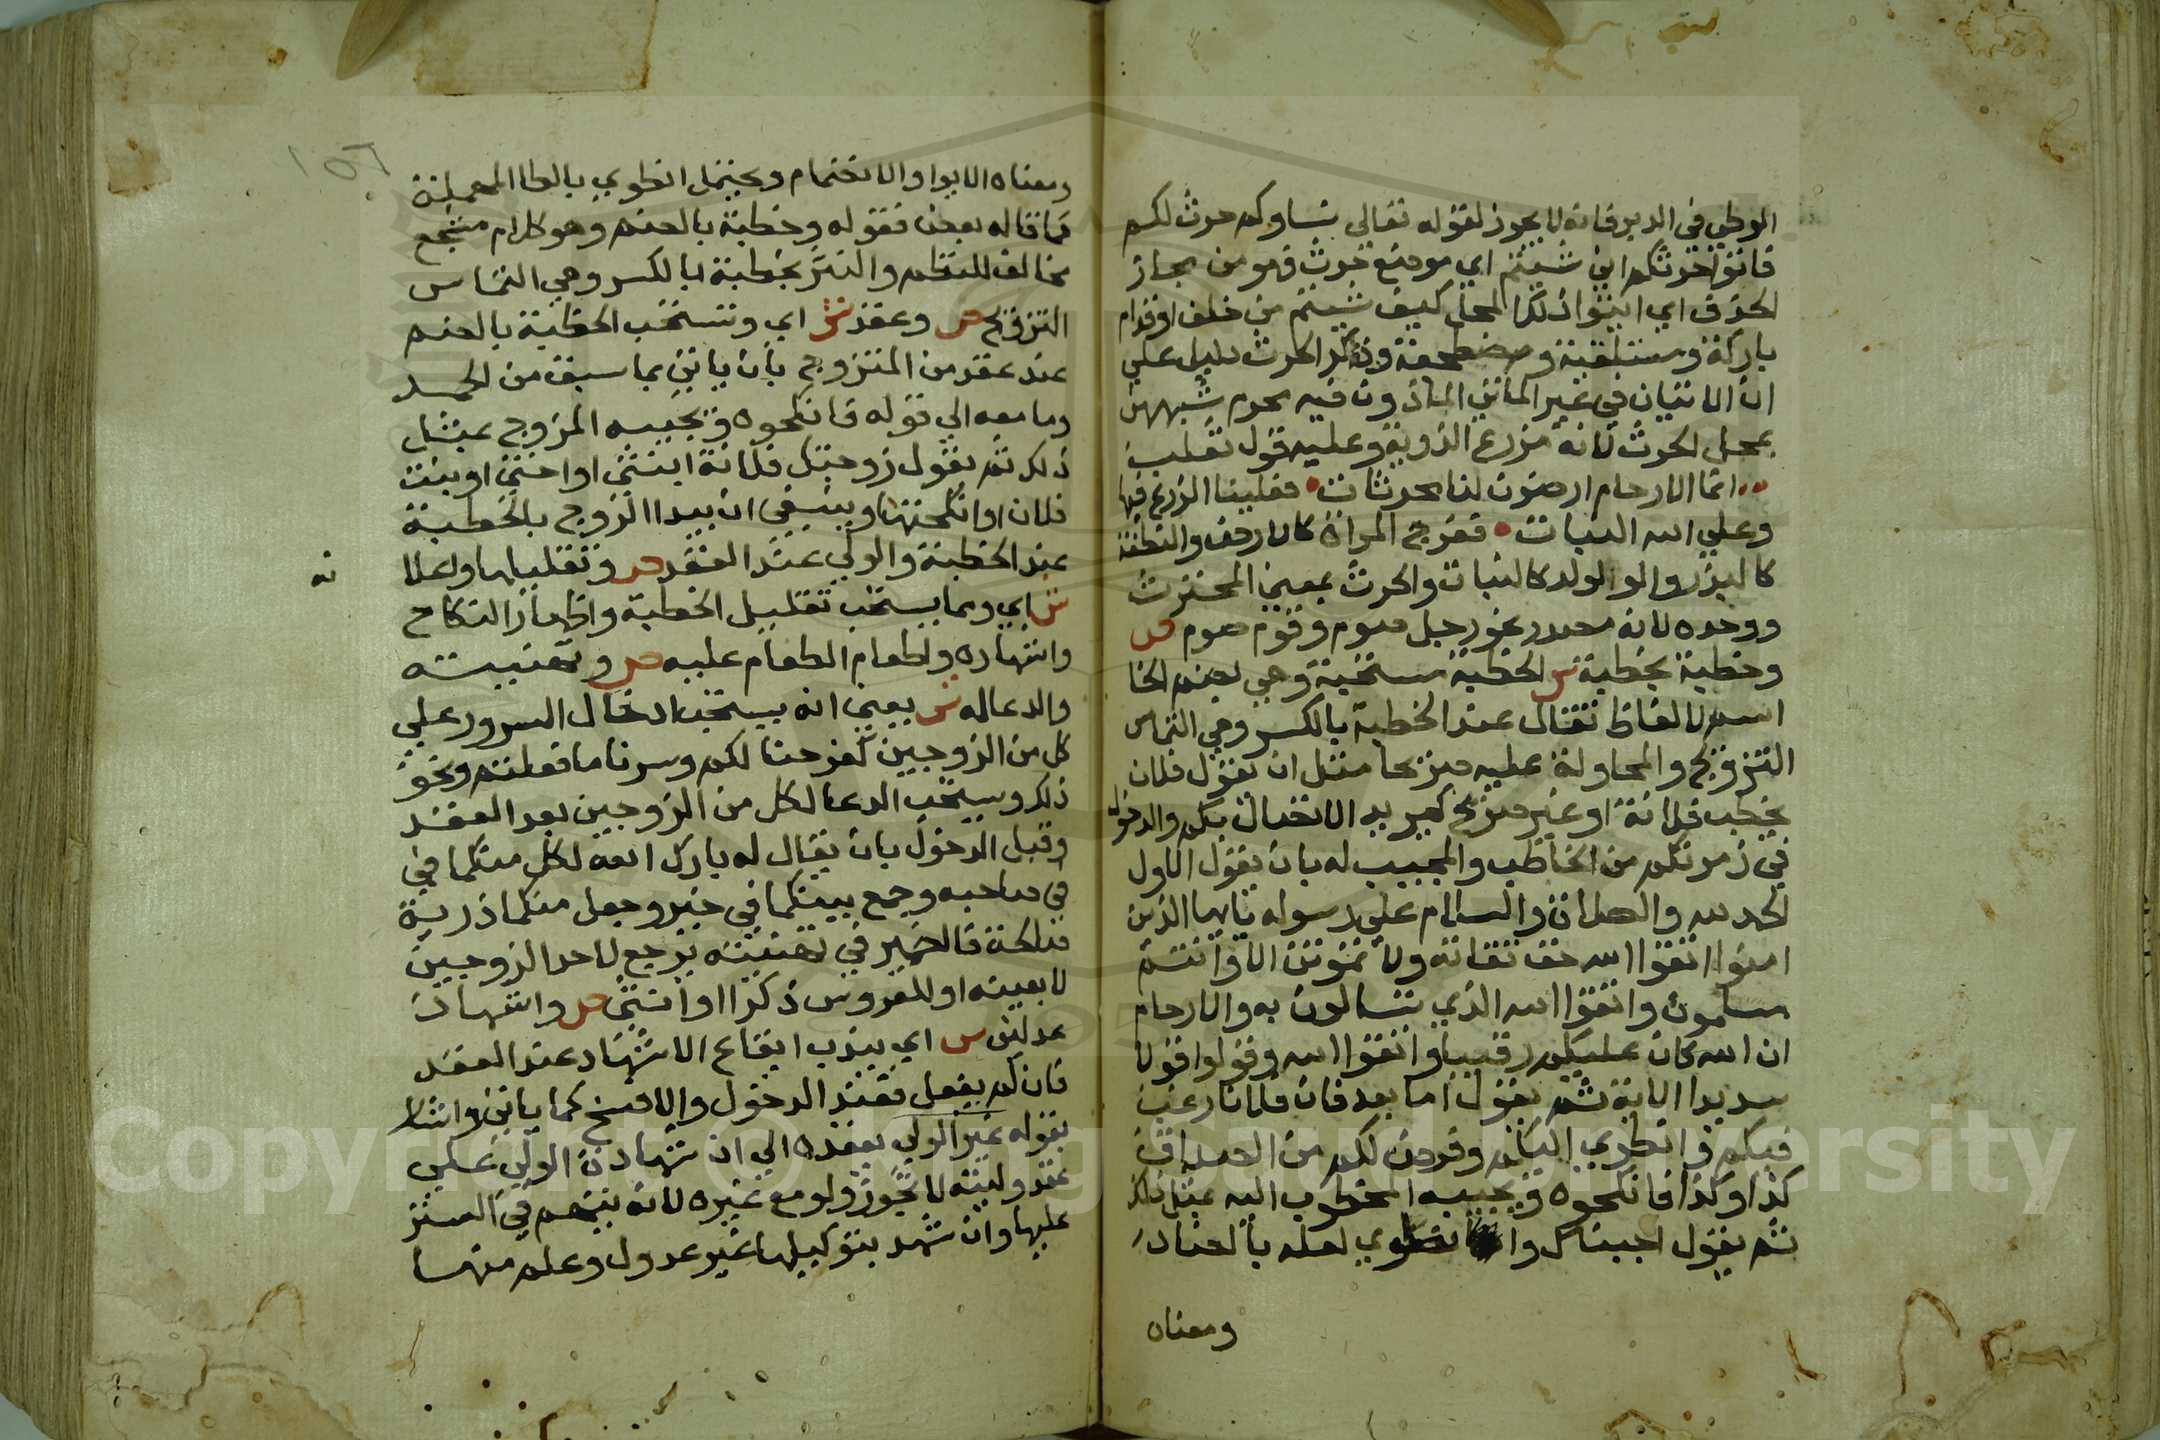 الوطي في الدبر فانه لا يجوز لقوله تعالى نساوكم حرث لكم
فاتوا حرثكم انى شيتم اي موضع حرث فهو من مجاز
الحذف اي ايتوا ذلك المحل كيف شيتم من خلف او قدام
باركة ومستلقية ومضطجعة وذكر الحرث دليل على
ان الاتيان في غير الماتى الماذون فيه محرم شبههن
بمحل الحرث لانه مزرع الذرية وعليه قول ثعلب
انما الارحام ارضون لنا محرثات • فعلينا الزرع فيها
وعلى الله النبات • ففرج المراة كالارض والنطفة
كالبزر والولد كالنبات والحرث بمعنى المحترث
ووحده لانه مصدر نحو رجل صوم وقوم صوم ص
وخطبة بخطبة ش الخطبة مستحبة وهي بضم الخا
اسم لالفاظ تقال عند الخطبة بالكسر وهي التماس
التزويج والمحاولة عليه صريحا مثل ان يقول فلان
يخطب فلانة او غير صريح كيريد الاتصال بكم والدخول
في زمرتكم من الخاطب والمجيب له بان يقول الاول
الحمد لله والصلاة والسلام على رسوله يايها الذين
امنوا اتقوا الله حق تقاته ولا تموتن الا وانتم
مسلمون واتقوا الله الذي تسالون به والارحام
ان الله كان عليكم رقيبا واتقوا الله وقولوا قولا
سديدا الاية ثم يقول اما بعد فان فلانا رغب
فيكم وانطوى اليكم وفرض لكم من الصداق
كذا وكذا فانكحوه ويجيبه المخطوب اليه بمثل ذلك
ثم يقول اجبناك وانضوى لعله بالضاد
ومعناه
١٥٦
ومعناه الايوا والانضمام ويحتمل انطوى بالطا المهملة
فما قاله بعض فقوله وخطبة بالضم وهو كلام مسجع
مخالف للنظم والنثر بخطبة بالكسر وهي التماس
التزويج ص وعقد ش اي وتستحب الخطبة بالضم
عند عقد من المتزوج بان ياتي بما سبق من الحمد
وما معه الى قوله فانكحوه ويجيبه المزوج بمثل
ذلك ثم يقول زوجتك فلانة ابنتي او اختي او بنت
فلان او انكحتها وينبغي ان يبدا الزوج بالخطبة
عند الخطبة والولي عند العقد ص وتقليلها واعلا
نه
ش اي ومما يستحب تقليل الخطبة واظهار النكاح
واشهاره واطعام الطعام عليه ص وتهنيته
والدعا له ش يعني انه يستحب ادخال السرور على
كل من الزوجين كفرحنا لكم وسرنا ما فعلتم ونحو
ذلك ويستحب الدعا لكل من الزوجين بعد العقد
وقبل الدخول بان يقال له بارك الله لكل منكما في
في صاحبه وجمع بينكما في خير وجعل منكما ذرية
صالحة فالضمير في تهنيته يرجع لاحد الزوجين
لا بعينه او للعروس ذكرا او انثى ص واشهاد
عدلين ش اي يندب ايقاع الاشهاد عند العقد
فان لم يفعل فعند الدخول والا فسخ كما ياتي واشار
بقوله غير الولي بعقده الى ان شهادة الولي على
عقد وليته لا تجوز ولو مع غيره لانه يتهم في الستر
عليها وان شهد بتوكيلها غير عدول وعلم منهما